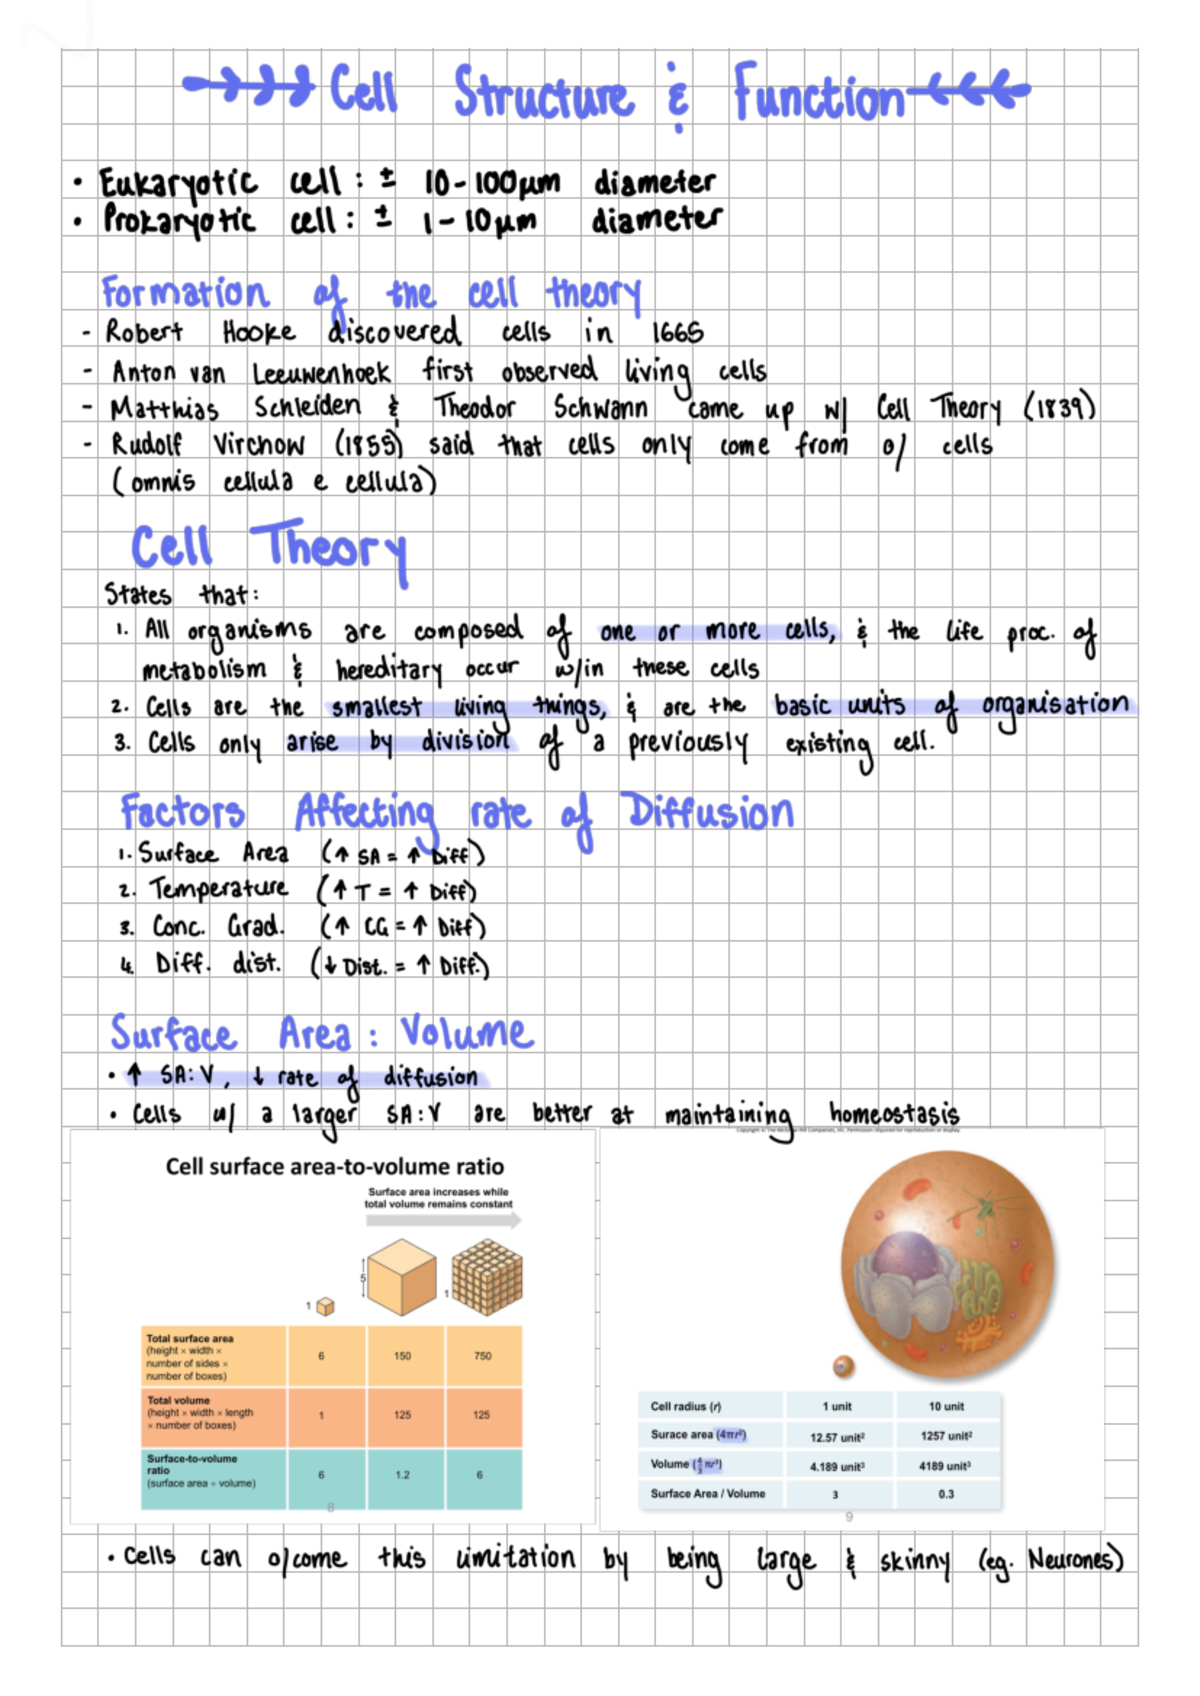 Cell Structure & Function
• Eukaryotic cell : ± 10-100µm diameter
• Prokaryotic cell : ± 1-10µm diameter
Formation of the cell theory
- Robert Hooke discovered cells in 1665
- Anton van Leeuwenhoek first observed living cells
- Matthias Schleiden & Theodor Schwann came up w/ Cell Theory (1839)
- Rudolf Virchow (1855) said that cells only come from o/ cells
(omnis cellula e cellula)
Cell Theory
States that:
1. All organisms are composed of one or more cells, & the life proc. of
metabolism & hereditary occur w/in these cells
2. Cells are the smallest living things, & are the basic units of organisation
3. Cells only arise by division of a previously existing cell.
Factors Affecting rate of Diffusion
1. Surface Area (↑ SA = ↑ Diff)
2. Temperature (↑ T = ↑ Diff)
3. Conc. Grad. (↑ CG = ↑ Diff)
4. Diff. dist. (↓ Dist. = ↑ Diff.)
Surface Area : Volume
• ↑ SA:V, ↓ rate of diffusion
• Cells w/ a larger SA:V are better at maintaining homeostasis
Cell surface area-to-volume ratio
Surface area increases while
total volume remains constant
5
1
1
Total surface area
(height × width ×
number of sides ×
number of boxes)
6 150 750
Total volume
(height × width × length
× number of boxes)
1 125 125
Surface-to-volume
ratio
(surface area ÷ volume)
6 1.2 6
8
Copyright © The McGraw-Hill Companies, Inc. Permission required for reproduction or display.
Cell radius (r) 1 unit 10 unit
Surace area (4πr²) 12.57 unit² 1257 unit²
Volume (4/3 πr³) 4.189 unit³ 4189 unit³
Surface Area / Volume 3 0.3
9
• Cells can o/come this limitation by being large & skinny (eg. Neurones)